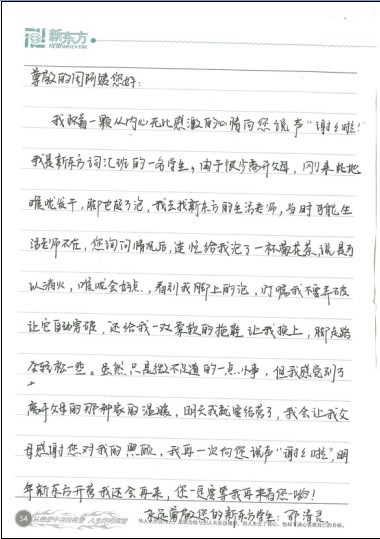 新东方
NEW ORIENTAL
尊敬的周阿姨您好:
我怀着一颗从内心无比感激的心情向您说声“谢谢啦!”
我是新东方词汇班的一名学生,由于很少离开父母,刚来此地
喉咙发干,脚也起了泡,我去找新东方的生活老师,当时可能生
活老师不在,您询问情况后,连忙给我泡了一杯菊花茶,说是可
以消火,喉咙会好点,看到我脚上的泡,叮嘱我不要弄破
让它自动窝破,还给我一双柔软的拖鞋让我换上,脚走路
会轻松一些。虽然只是微不足道的一点小事,但我感觉到了
离开父母的那种家的温暖,明天我就要结营了,我会让我父
母感谢您对我的照顾,我再一次向您说声“谢谢啦”,明
年新东方开营我还会再来,您一定要等我再来看您哟!
永远尊敬您的新东方学生:
54